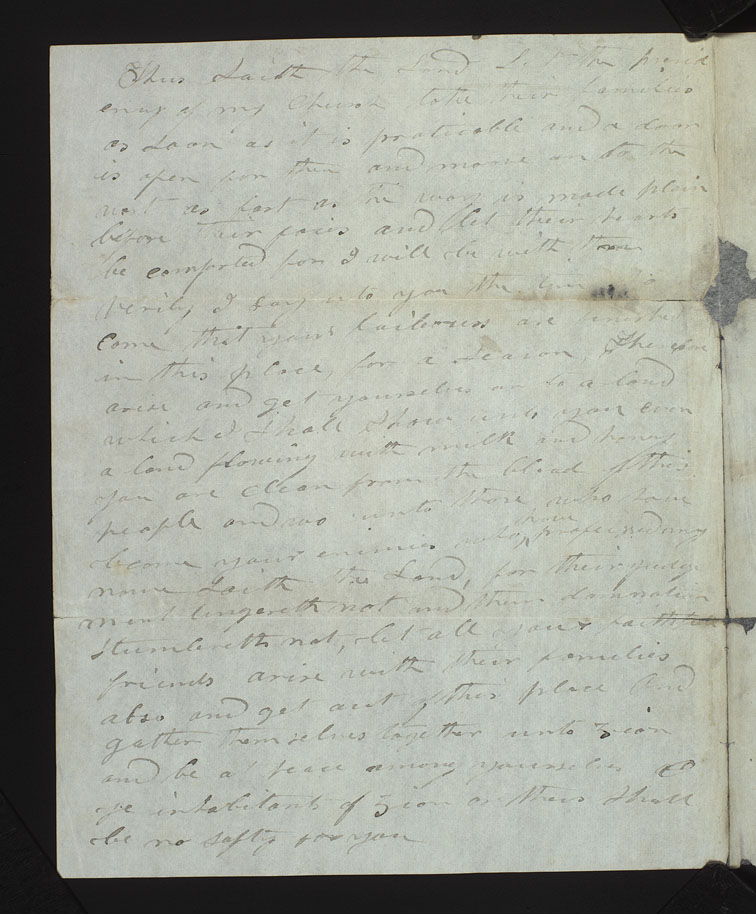 Thus Saith the Lord Let the presid
ency of my Church take their families
as Soon as it is practicable and a door
is open for them and move on to the
west as fast as the way is made plain
before their faces and let their hearts
be comforted for I will be with them
Verily I Say unto you the time
come that your laibours are finished
in this place, for a Season, Therefore
arise and get yourselves on to a land
which I Shall Show unto you even
a land flowing with milk and honey
you are clean from the blood of this
people and wo unto those who have
become your enimies who have professed my
name Saith the Lord, for their judge
ment lingereth not and their damnation
Slumbereth not, let all your faithfull
friends arise with their families
also and get out of this place and
gather themselves together unto Zion
and be at peace among yourselves O
ye inhabitants of Zion or their Shall
be no Safty for you